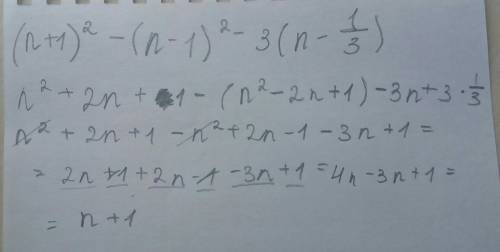 (n+1)² - (n-1)² - 3(n - 1/3)
n² + 2n + 1 - (n² - 2n + 1) - 3n + 3 · 1/3
n² + 2n + 1 - n² + 2n - 1 - 3n + 1 =
= 2n + 1 + 2n - 1 - 3n + 1 = 4n - 3n + 1 =
= n + 1